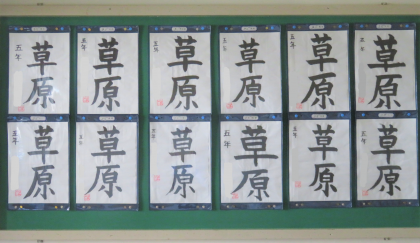 五年
草原
五年
草原
五年
草原
五年
草原
五年
草原
五年
草原
五年
草原
五年
草原
五年
草原
五年
草原
五年
草原
五年
草原